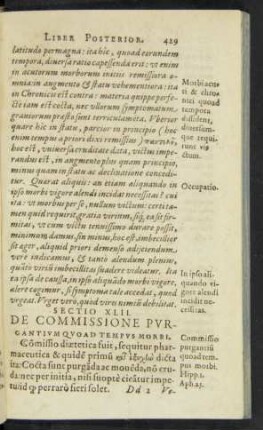 LIBER POSTERIOR. 429
latitudo permagna: ita hic, quoad eorundem
tempora, diversa ratio capessenda erit: ut enim
in acutorum morborum initiis remissiora
omnia: in augmento & statu vehementiora: ita
in Chronicis est contra: materia quippe perfecti
iam est cocta, nec ullorum symptomatum
graviorum praesto sunt terriculamenta. Uberior
quare hic in statu, parcior in principio (hoc
enim tempus a priori dixi remissius)
hoc est, universa eruditae dicta, victus imperandus
est, in augmento plus quam principio,
minus quam in statu ac declinatione concedi-
tur. Quaerat aliquis: an etiam aliquando in
ipso morbi vigore alendi incidat necessitas? cui
ita: ut morbus per se, nullum victum: certitamen
quid requirit, gratia virium, siq, ea se firmitas,
ut cum victu tenuissimo durare possit,
minimum damus, sin minus, hoc est imbecillior
sit aeger, aliquid priori demenso adjiciendum,
vere indicamus, & tanto alendum plenius,
quanto vires imbecillitas suadere videatur. Ita
ex ipsa de caussa, in ipso aliquando morbi vigore,
alere cogimur, si symptoma tale accedat, quod
urgeat. Veget vero, quod vires nimium debilitat.
SECTIO XLII.
DE COMMISSIONE PUR-
GANTIUM QUOAD TEMPUS MORBI.
Commissio diaetetica fuit, sequitur phar-
maceutica & quidem primum dicta
ita: Cocta sunt purganda ac movenda, non cru-
da: nec per initia, nisi suopte cieantur impe-
tu: id q; perraro fieri solet.
Dd 2 Ve-
Morbi acu-
ti & chro-
nici quoad
tempora
differunt,
diversum-
que requi-
runt vi-
ctum.
Occupatio.
In ipso ali-
quando vi-
gore alendi
incidit ne-
cessitas.
Commissio
purgantium
quoad tem-
pus morbi.
Hipp. 1.
Aph. 25.